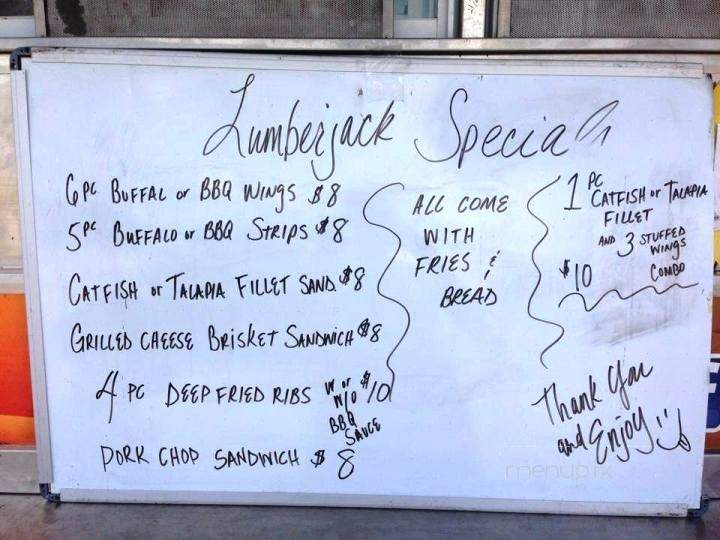 Lumberjack Specials
6 PC BUFFAL or BBQ WINGS $8
5 PC BUFFALO or BBQ STRIPS $8
CATFISH or TALAPIA FILLET SAND $8
GRILLED CHEESE BRISKET SANDWICH $8
4 PC DEEP FRIED RIBS W or W/O BBQ SAUCE $10
PORK CHOP SANDWICH $8
ALL COME
WITH
FRIES &
BREAD
1 PC CATFISH or TALAPIA
FILLET
AND 3 STUFFED
WINGS
$10 COMBO
Thank You
and Enjoy!!
menupix